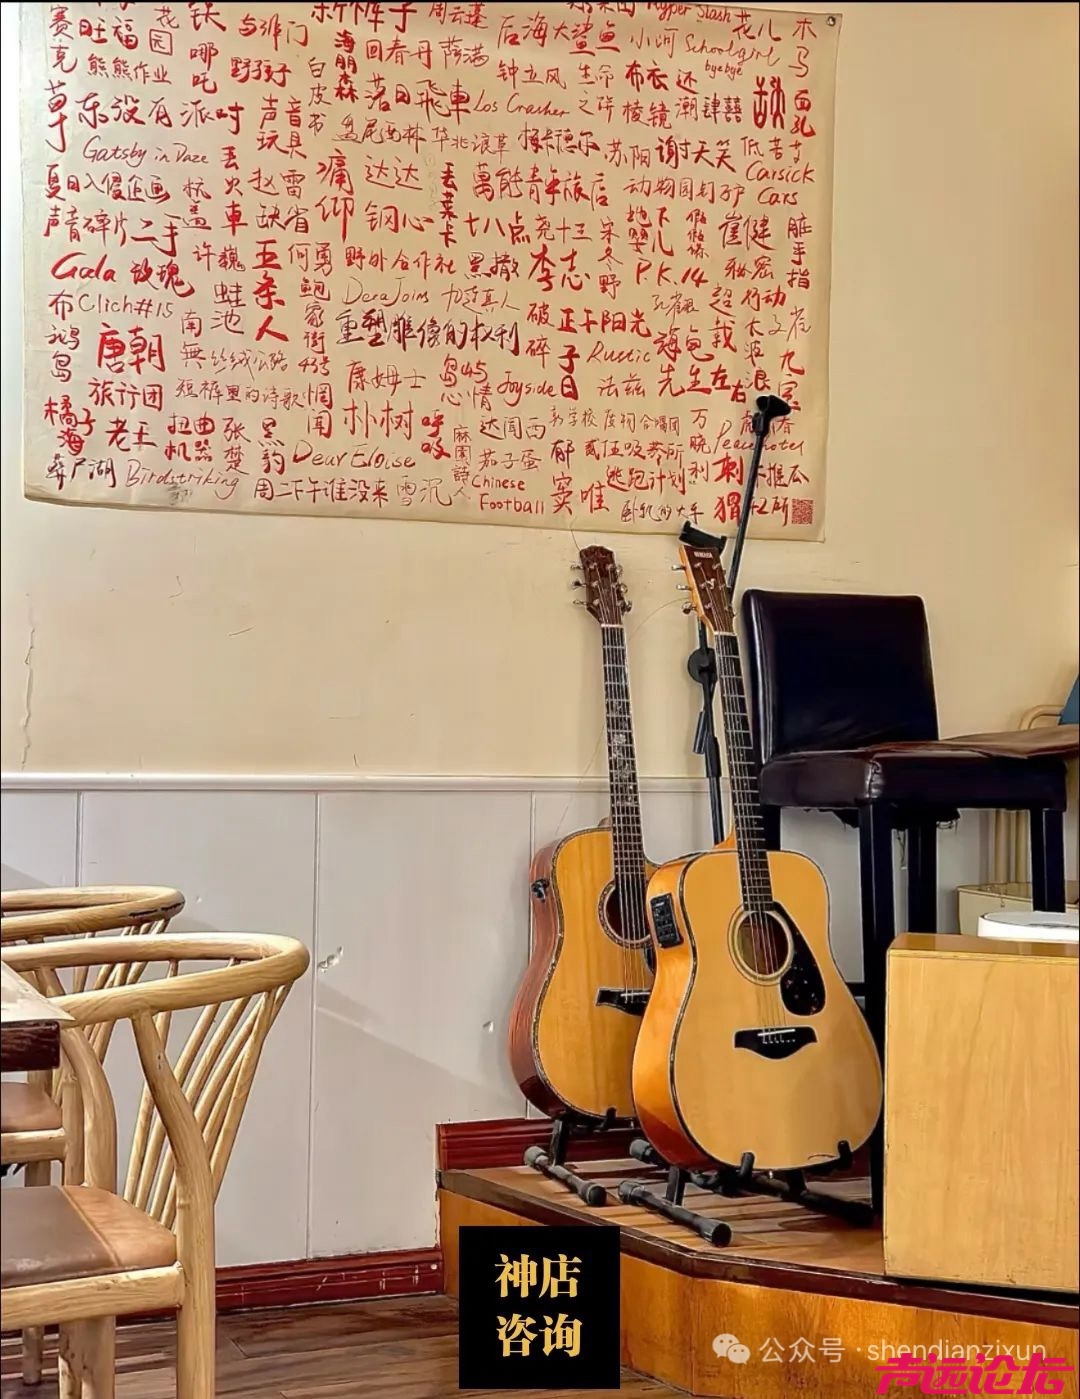 新裤子 周云蓬
Hyper Slash 花儿 木马
赛克 旺福 花园 铁 与非门
后海大鲨鱼 小河 Schoolgirl byebye
熊熊作业 哪吒 野孩子 海朋森 回春丹 荫满
白皮书 钟立风 生命之饼 布衣 还潮
草东没有派对 声音玩具 落日飛車 Los Crasher 棱镜 肆囍 缺 西孔
盘尾西林 华北浪革 梅卡德尔 苏阳 谢天笑 低苦艾
Gatsby in Daze 丢火車 赵雷 痛仰 达达 丢莱卡 萬能青年旅店 动物园钉子户 Carsick Cars
夏日入侵企画 杭盖 缺省 钢心 七八点 尧十三 宋冬野 地下婴儿 假假條 崔健 脏手指
声音碎片 二手玫瑰 许巍 五条人 何勇 野外合作社 黑撒 李志 P.K.14 秘密行动
Gala 蛙池 鲍家街43号 Dera Joins 九连真人 破碎 正午阳光 孔雀眼 超载 太子雀
布 Clich#15 南無 重塑雕像的权利 海龟先生 太波浪
鴻鸟岛 唐朝 丝绒公路 康姆士 岛屿心情 子曰 Rustic 左右 九宝
旅行团 短裤里的诗歌 惘闻 Joyside 法兹
橘子海 老王 扭曲机器 张楚 黑豹 朴树 呼吸 麻園詩人 达闻西 郭学校 废物合唱团 万晓利 Peace Hotel
Dear Eloise 茄子蛋 郁 贰伍吸养所 刺猬 木推瓜
彝尸湖 Birdstriking 周二下午谁没来 雪沉 Chinese Football 窦唯 逃跑计划
卧轨的火车 42所
神店
咨询
公众号 · shendianzixun
声远论坛